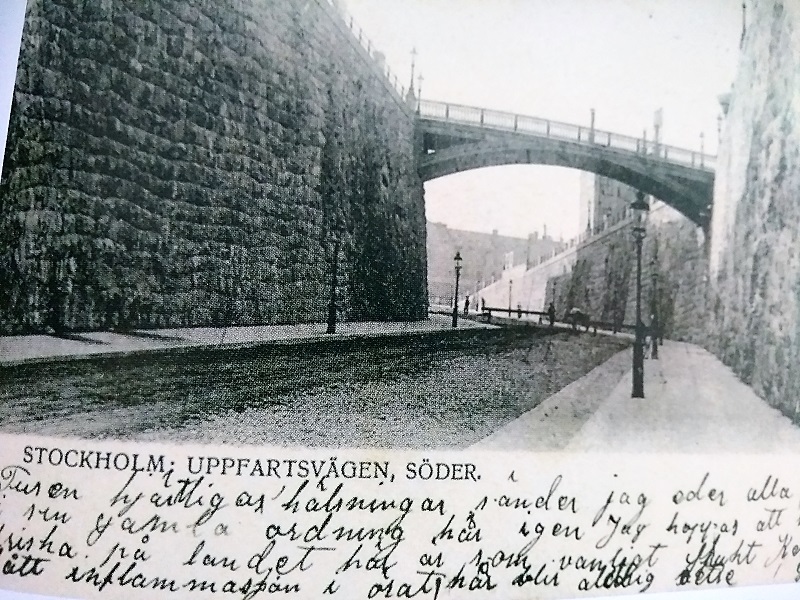 STOCKHOLM, UPPFARTSVÄGEN, SÖDER.
Tusen hjärtligas hälsningar sänder jag eder alla
i sin gamla ordning här igen Jag hoppas att
friska på landet här är som vanligt
ått inflammasjon i örat, här blir aldrig